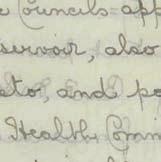 Councils app
servoir, also
ato, and po
Health Comm